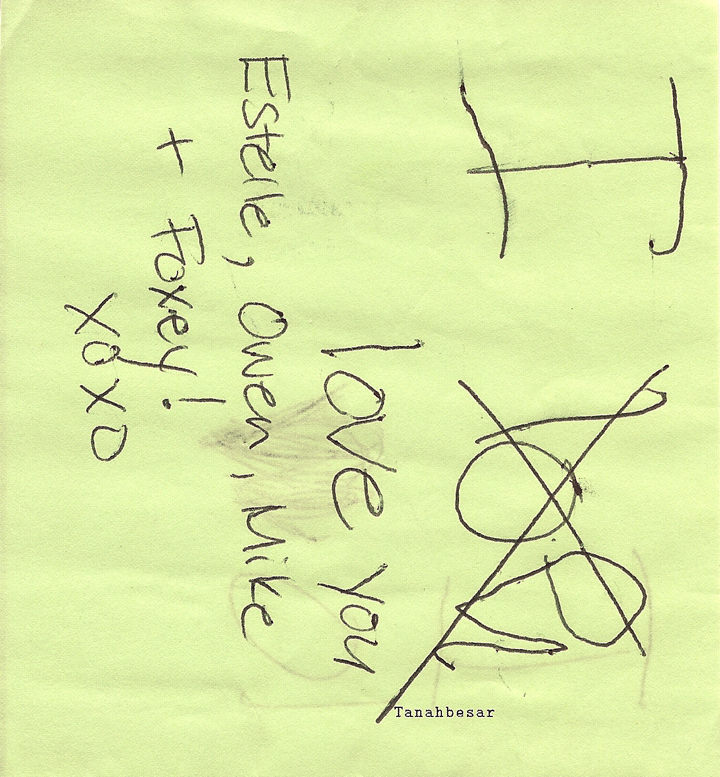 I
love you
Estelle, Owen, Mike
+ Foxey!
XOXO
Tanahbesar